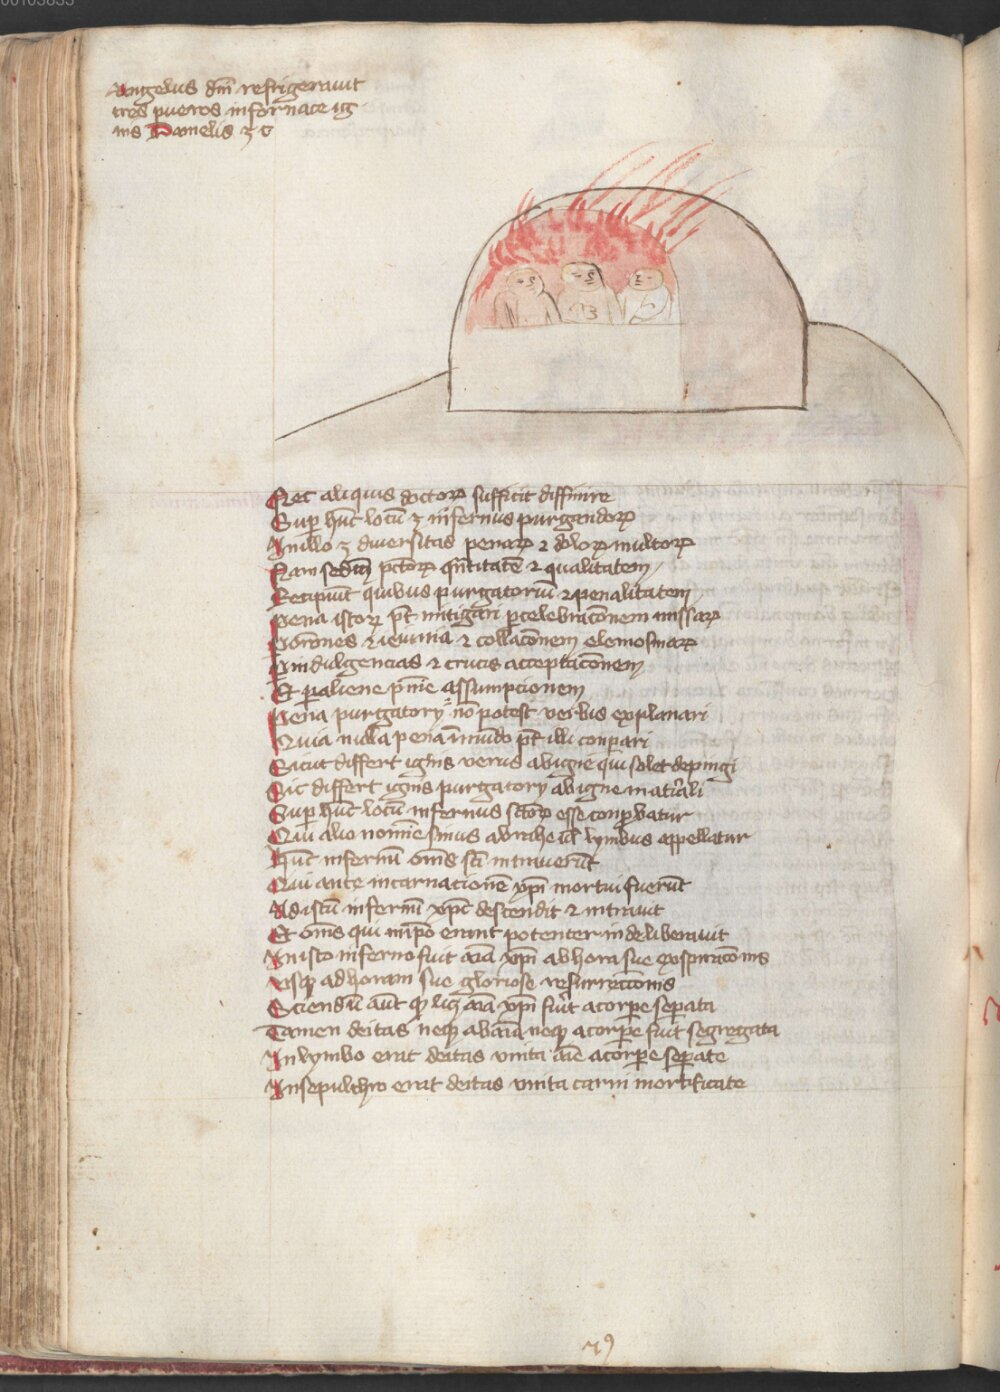 00103833
Angelus dm̄ refrigeravit
tres pueros in fornace ig
nis Danielis 3 c
Nec aliquis doctoꝝ sufficit diffinire
Sup hūc locū ʒ infernus purgandoꝝ
In illo ʒ diversitas penaꝝ ⁊ doloꝝ multoꝝ
Nam sedm̄ pctoꝝ qn̄titatē ⁊ qualitatem
Recipiūt quibus purgatoriū ⁊ penalitatem
Pena istoꝝ pt̄ mitigari ꝑ celebracōnem missaꝝ
Orōnes ⁊ ieiunia ⁊ collacōnem elemosinaꝝ
Ꝑ indulgencias ⁊ crucis acceptacōnem
Et ꝑ aliene pn̄ie assumpcionem
Pena purgatorij nō potest verbis explanari
Quia nulla pena ī mūdo pt̄ illi conpari
Sicut differt ignis verus ab igne qui solet depingi
Sic differt ignis purgatorij ab igne mat̄iali
Sup hūc locū infernus sc̄toꝝ esse conꝓbatur
Qui alio nomīe sinus abrahe ul̄ lymbus appellatur
Hūc infernū om̄s sc̄i intraverūt
Qui ante incarnacionē xp̄i mortui fuerūt
Ad istū infernū xp̄c descendit ⁊ intravit
Et om̄s qui in ip̄o erant potenter inde liberavit
In isto inferno fuit aīa xp̄i ab hora sue exspiracōnis
Usqꝫ ad horam sue gloriose resurreccōnis
Sciendū aūt ꝙ licꝫ aīa xp̄i fuīt a corꝑe seꝑata
Tamen deitas neqꝫ ab aīa neqꝫ a corꝑe fuit segregata
In lymbo erat deitas unita aīe a corꝑe seꝑate
In sepulchro erat deitas unita carni mortificate